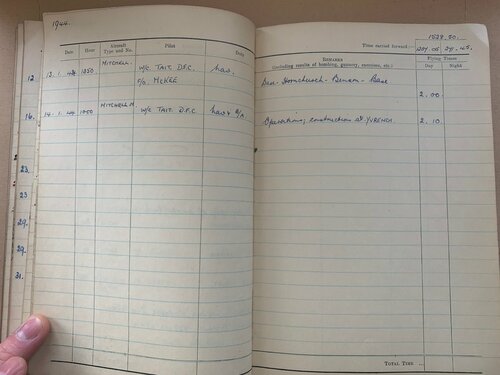 1944.
Date Hour Aircraft Type and No. Pilot Duty
13.1.44 1050 MITCHELL. W/C TAIT. D.F.C. Nav.
F/O. McKEE
14.1.44 1000 MITCHELL W/C TAIT. D.F.C
12
16.
23.
23
29.
29.
31.
Time carried forward:—
REMARKS
(including results of bombing, gunnery, exercises, etc.)
Flying Times
Day Night
Hornchurch - Benson - Base
2.00
Operations; construction at YVRENCH. 2.10
TOTAL TIME